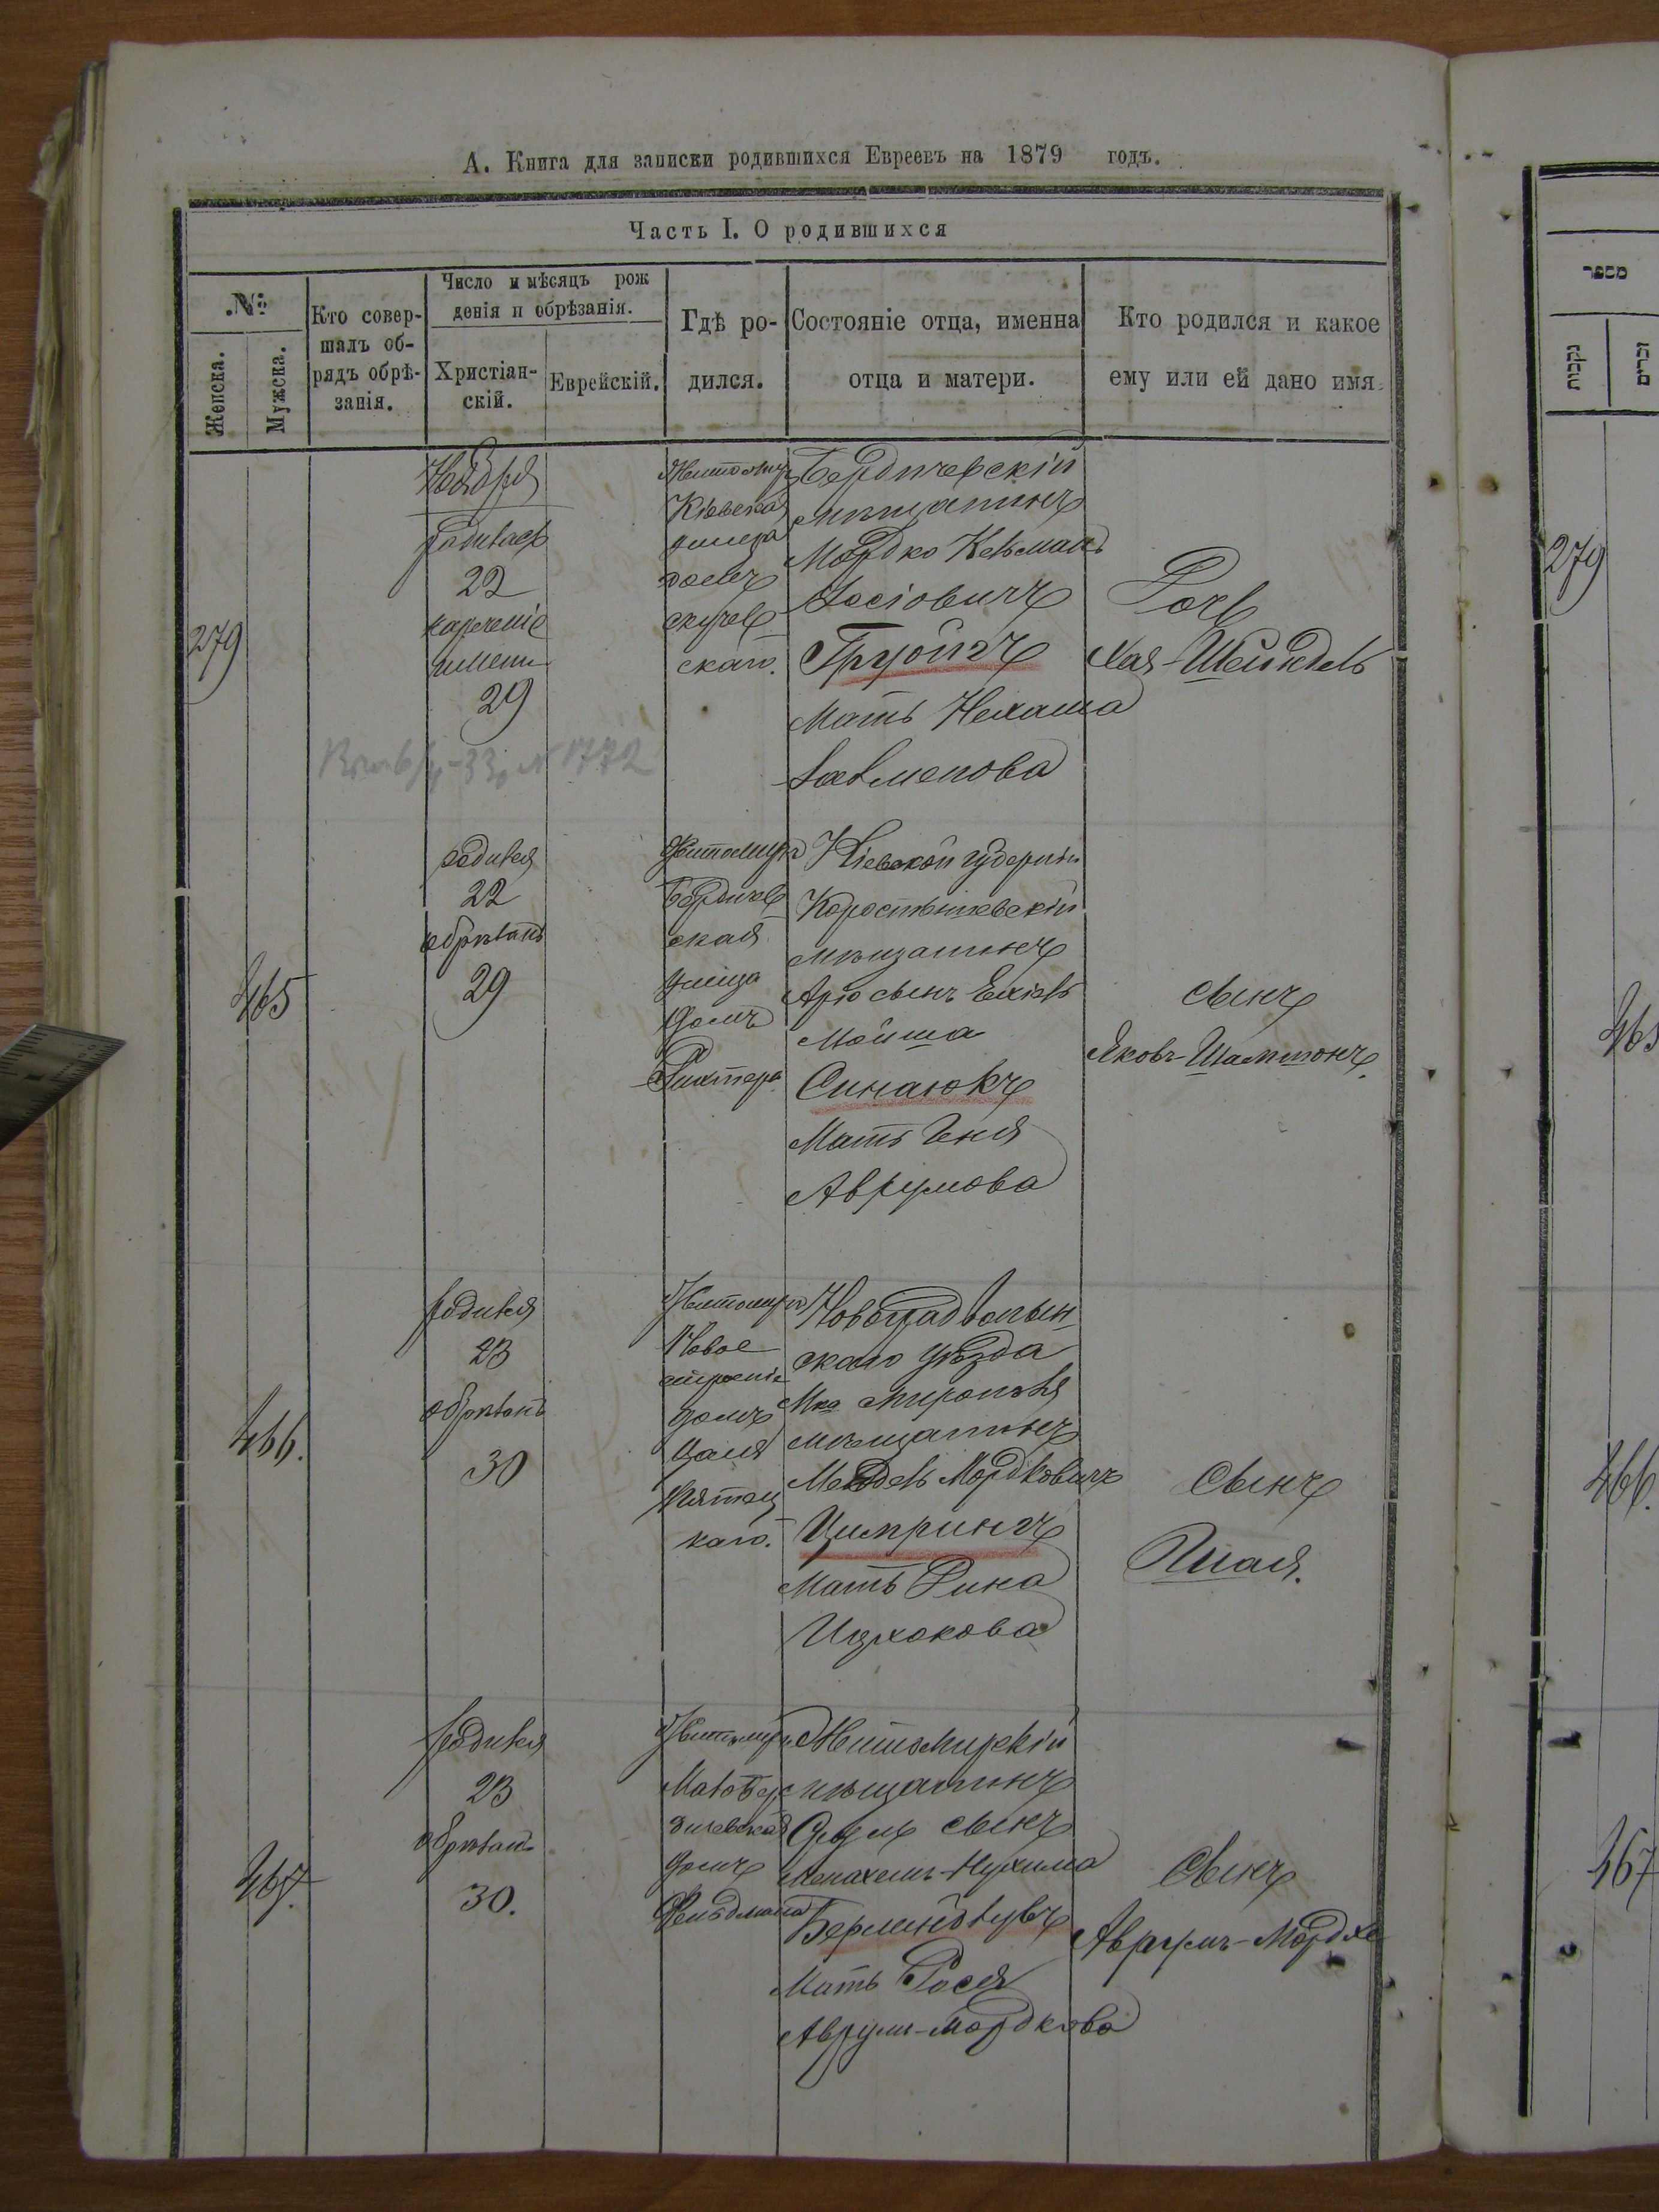 А. Книга для записки родившихся Евреевъ на 1879 годъ.
Часть I. О родившихся
№
Женска.
Мужска.
Кто совер-
шалъ об-
рядъ обрѣ-
занія.
Число и мѣсяцъ рож
денія и обрѣзанія.
Христіан-
скій.
Еврейскій.
Гдѣ ро-
дился.
Состояніе отца, именна
отца и матери.
Кто родился и какое
ему или ей дано имя.
279
Ноября
родилась
22
нареченіе
имени
29
Житомиръ
Кіевская
улица
домъ
скаго.
Бердичевскій
мѣщанинъ
Мордко Кельманъ
Іосіовичъ
Мать Нехама
Залменова
Дочь
Хая-Шейндель
№ 1772
465
родился
22
обрѣзанъ
29
Житомиръ
Бердичев
ская
улица
домъ
Рихтера
Кіевской губерніи
Коростышевскій
мѣщанинъ
Арю сынъ Ехіель
Мойша
Синаюкъ
Мать Геня
Аврумова
сынъ
Яковъ-Шамшонъ.
466.
родился
23
обрѣзанъ
30
Житомиръ
Новое
строеніе
домъ
каго.
Новоградволын-
скаго уѣзда
Мка Мирополя
мѣщанинъ
Мендель Мордковичъ
Цимрингъ
Мать Рина
Ицхокова
Сынъ
467.
родился
23
обрѣзанъ
30.
Житомиръ
МалоБер
дичевская
домъ
Фельдмана
Житомирскій
мѣщанинъ
Сруль сынъ
Менахемъ-Нухима
Мать Рося
Аврумъ-Мордкова
Сынъ
Аврумъ-Мордхе
מספר
נקבות
זכרים
279
465
466.
467